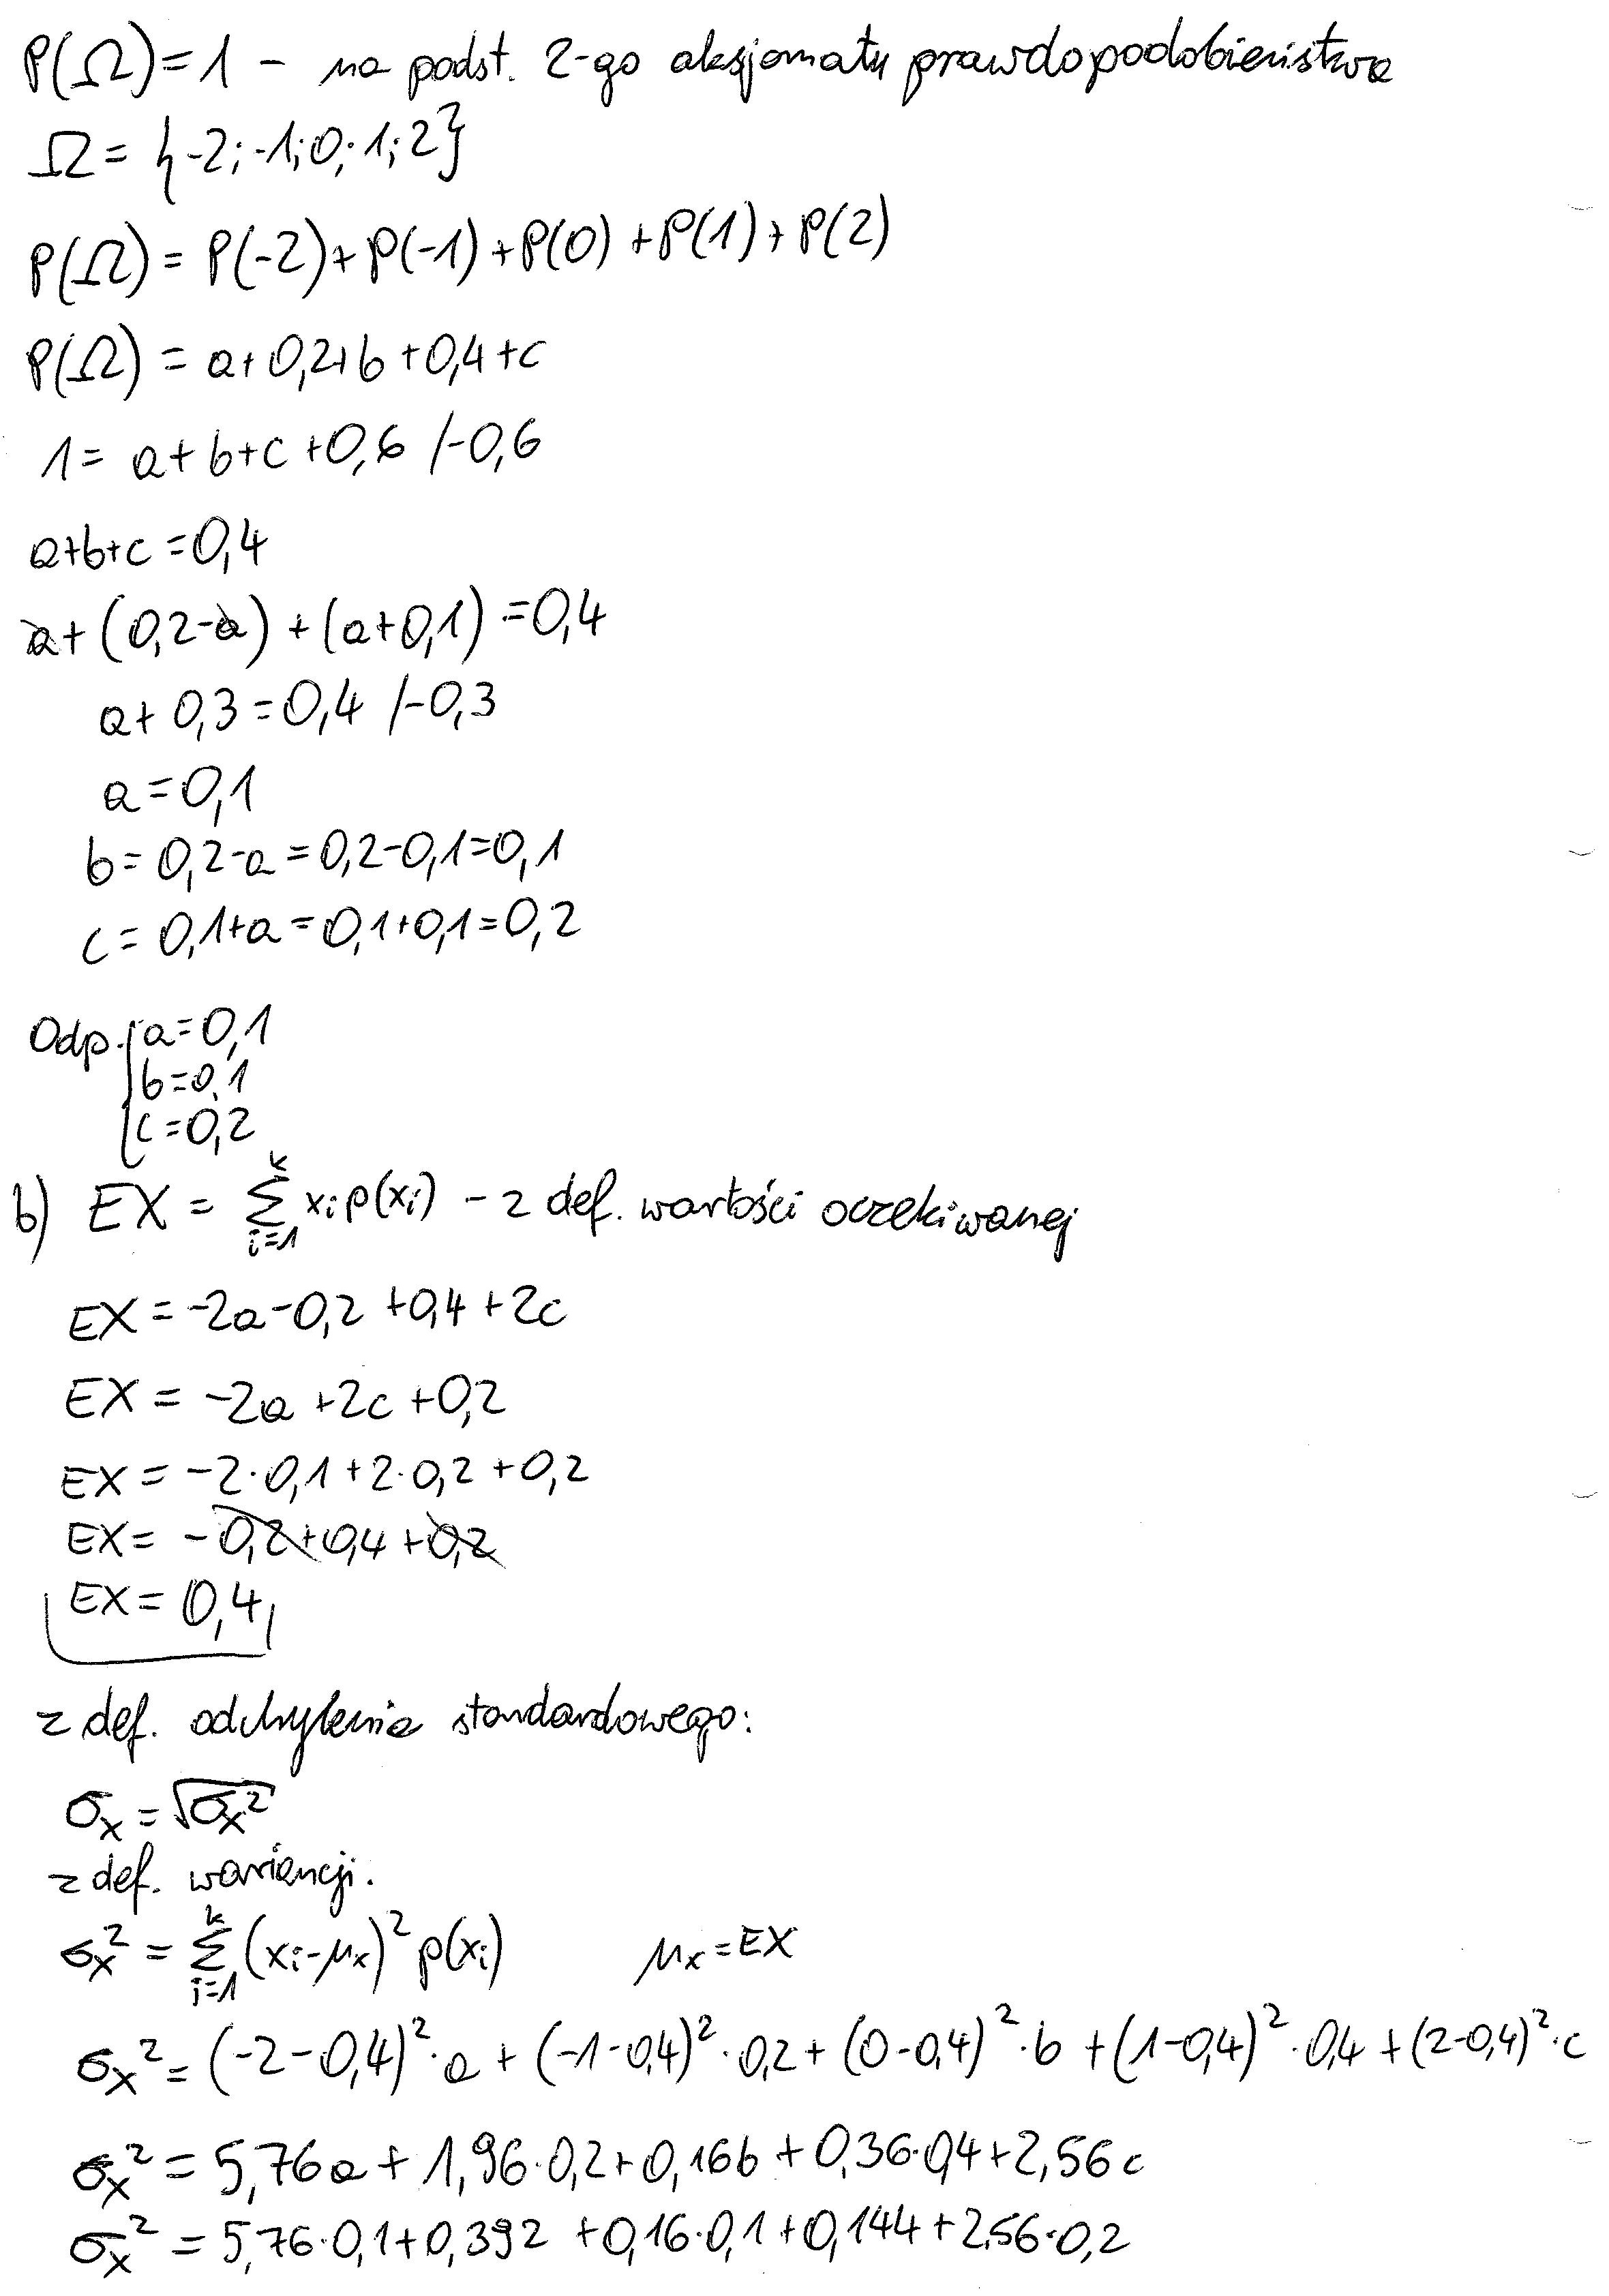 P(Ω)=1 - na podst. 2-go aksjomatu prawdopodobieństwa
Ω = {-2; -1; 0; 1; 2}
P(Ω) = P(-2)+P(-1)+P(0)+P(1)+P(2)
P(Ω) = a+0,2+b+0,4+c
1 = a+b+c+0,6 /-0,6
a+b+c=0,4
a+(0,2-a)+(a+0,1)=0,4
a+0,3=0,4 /-0,3
a=0,1
b=0,2-a=0,2-0,1=0,1
c=0,1+a=0,1+0,1=0,2
Odp. { a=0,1
b=0,1
c=0,2
b) EX = \sum_{i=1}^{k} x_i p(x_i) - z def. wartości oczekiwanej
EX = -2a-0,2+0,4+2c
EX = -2a+2c+0,2
EX = -2·0,1+2·0,2+0,2
EX = -0,2+0,4+0,2
EX = 0,4
z def. odchylenia standardowego:
σ_x = √σ_x²
z def. wariancji.
σ_x² = \sum_{i=1}^{k} (x_i-μ_x)² p(x_i) μ_x = EX
σ_x² = (-2-0,4)²·a+(-1-0,4)²·0,2+(0-0,4)²·b+(1-0,4)²·0,4+(2-0,4)²·c
σ_x² = 5,76a+1,96·0,2+0,16b+0,36·0,4+2,56c
σ_x² = 5,76·0,1+0,392+0,16·0,1+0,144+2,56·0,2